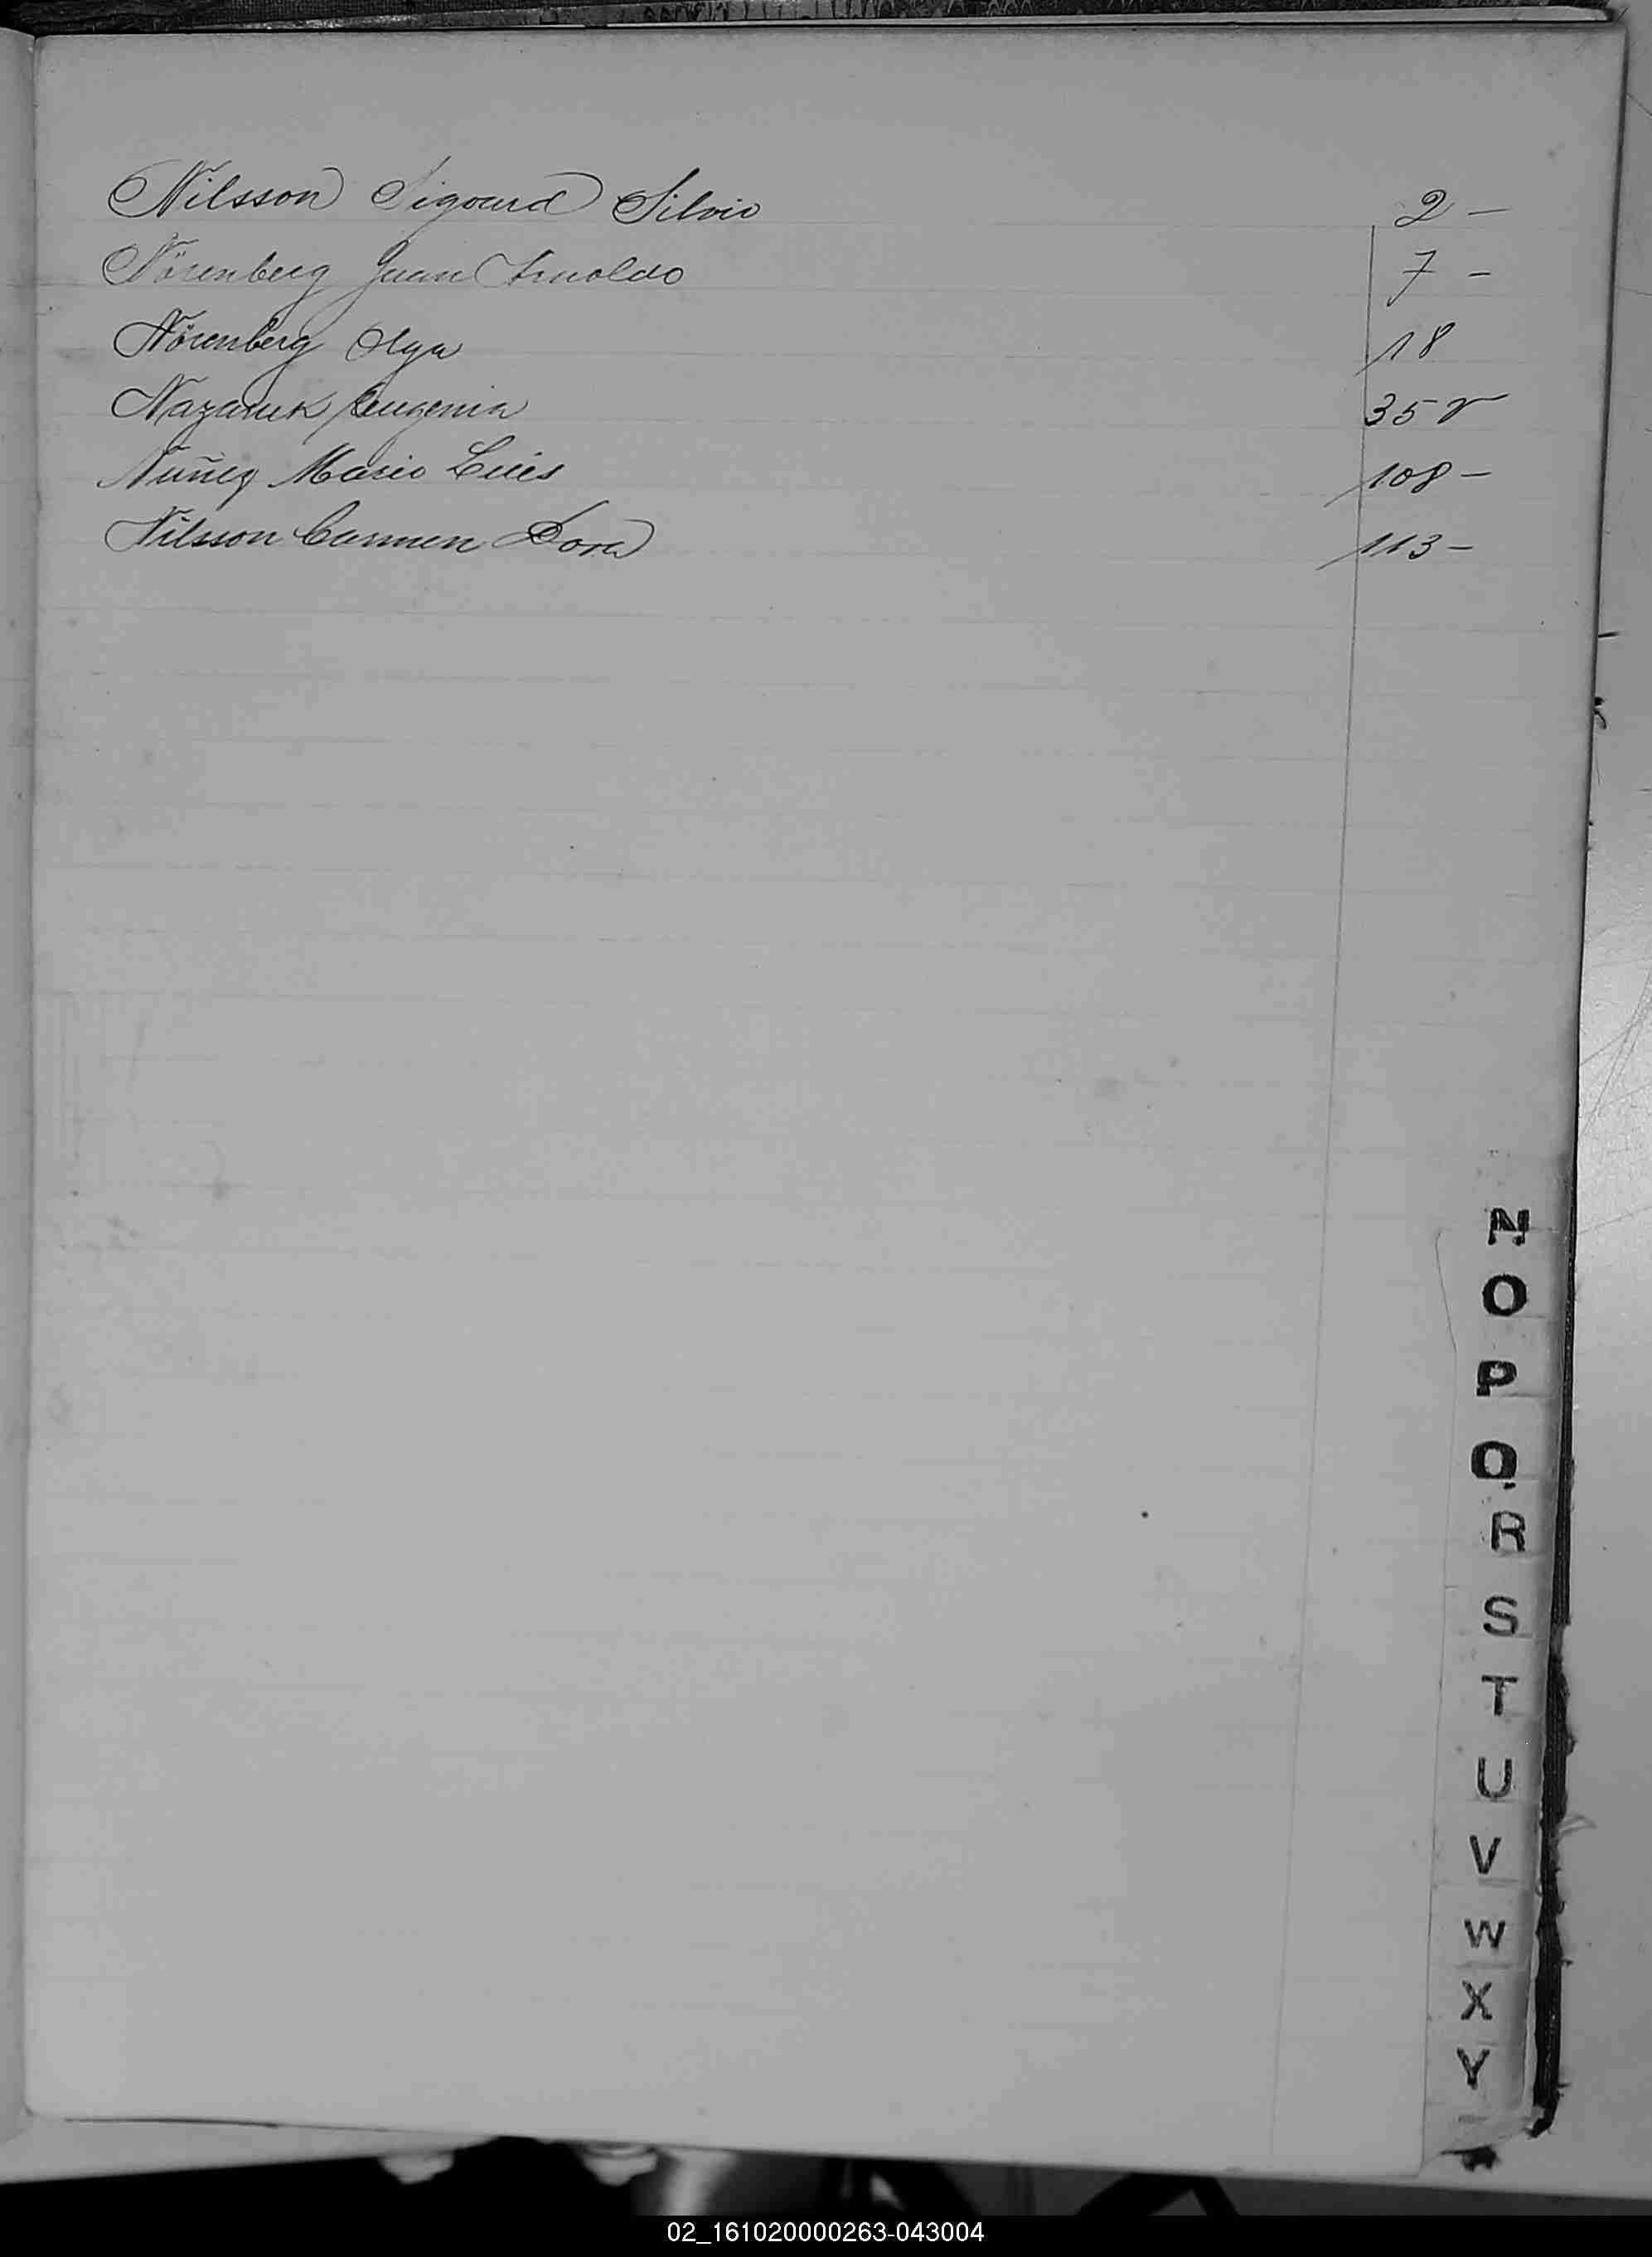 Nilsson Sigourd Silvio 2 –
Nörenberg Juan Arnoldo 7 –
Nörenberg Olga 18
Nazaruk Eugenia 35 v
Nuñez Mario Luis 108 –
Nilsson Carmen Dora 113 –
N
O
P
Q
R
S
T
U
V
W
X
Y
02_161020000263-043004